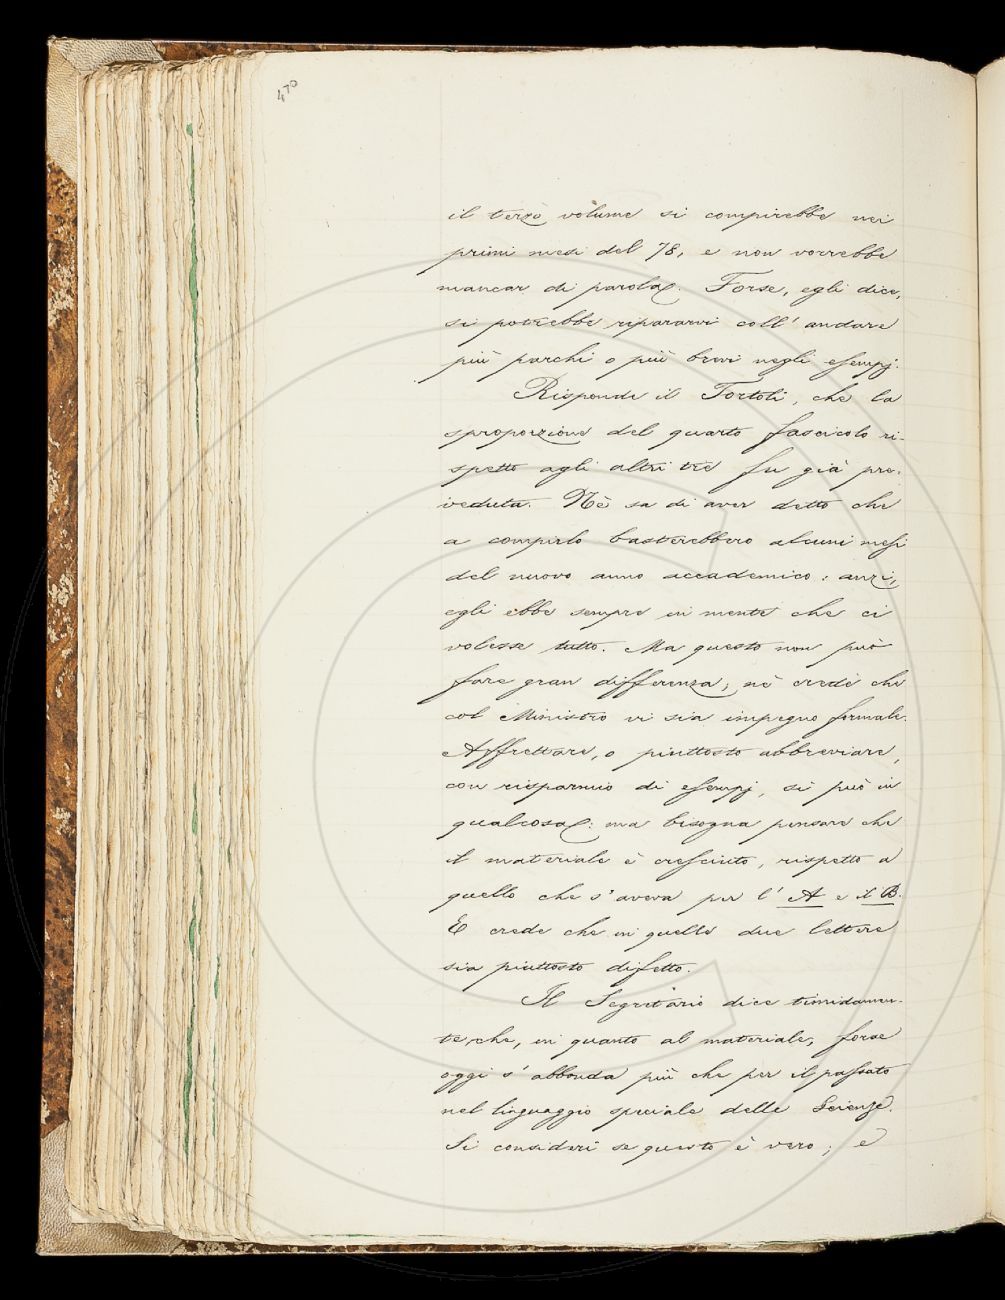 470
il terzo volume si compirebbe nei
primi mesi del 78, e non vorrebbe
mancar di parola. Forse, egli dice,
si potrebbe ripararvi coll' andare
più parchi o più brevi negli esempj.
Risponde il Tortoli, che la
sproporzione del quarto fascicolo ri-
spetto agli altri tre fu già pre-
veduta. Nè sa di aver detto che
a compirlo basterebbero alcuni mesi
del nuovo anno accademico: anzi,
egli ebbe sempre in mente che ci
volesse tutto. Ma questo non può
fare gran differenza; nè crede che
col Ministro vi sia impegno formale.
Affrettare, o piuttosto abbreviare,
con risparmio di esempj, si può in
qualcosa: ma bisogna pensare che
il materiale è cresciuto, rispetto a
quello che s'aveva per l' A e il B.
E crede che in quelle due lettere
sia piuttosto difetto.
Il Segretario dice timidamen-
te, che, in quanto al materiale, forse
oggi s' abbonda più che per il passato
nel linguaggio speciale delle Scienze.
Si consideri se questo è vero; e